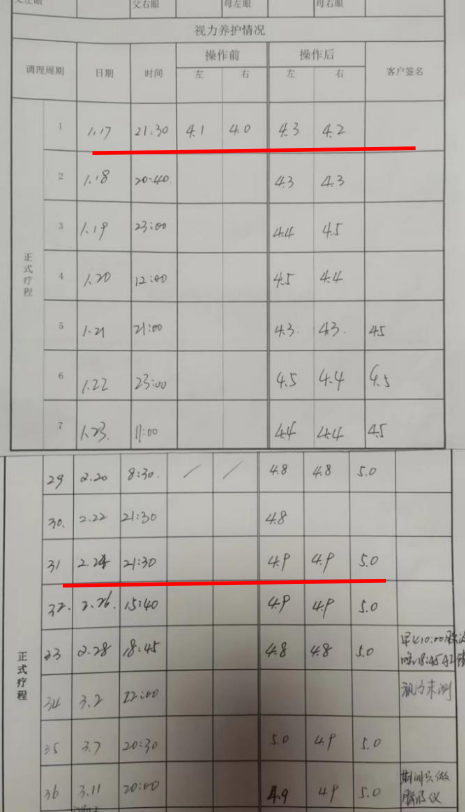 父右眼 母左眼 母右眼
视力养护情况
调理周期 日期 时间 操作前 操作后 客户签名
左 右 左 右
正式疗程
1 1.17 21:30 4.1 4.0 4.3 4.2
2 1.18 20:40 4.3 4.3
3 1.19 23:00 4.4 4.5
4 1.20 12:00 4.5 4.4
5 1.21 21:00 4.3 4.3 4.5
6 1.22 23:00 4.5 4.4 4.5
7 1.23 11:00 4.4 4.4 4.5
正式疗程
29 2.20 8:30 / / 4.8 4.8 5.0
30 2.22 21:30 4.8
31 21:30 4.9 4.9 5.0
32 2.26 15:40 4.9 4.9 5.0
33 2.28 18:45 4.8 4.8 5.0
34 3.2 22:00 视力未测
35 3.7 20:30 5.0 4.9 5.0
36 3.11 20:00 4.9 4.9 5.0